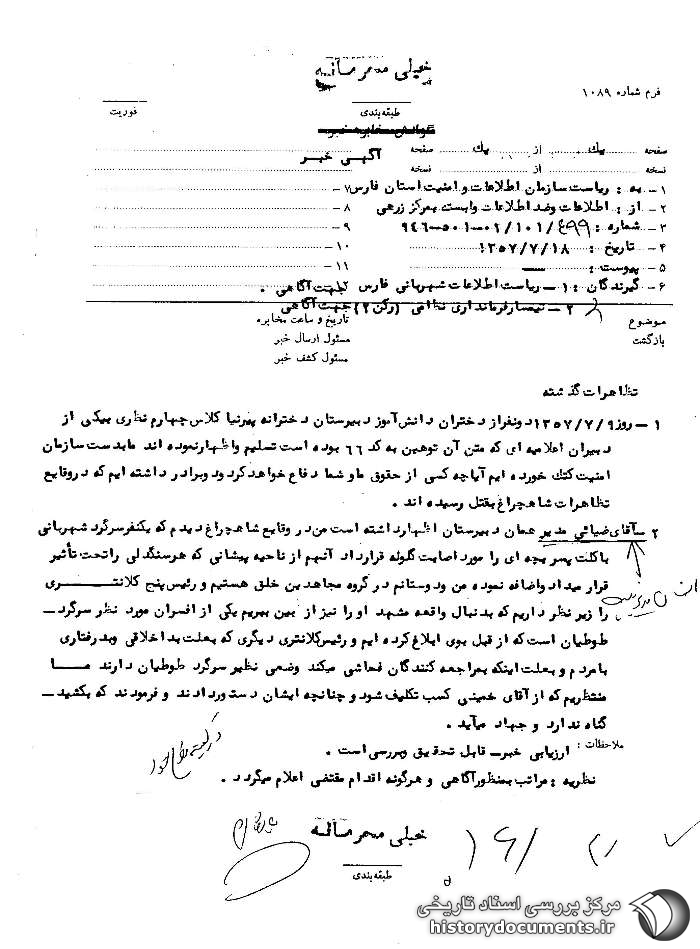 خیلی محرمانه
فرم شماره ۱۰۸۹
طبقه‌بندی
فوریت
صفحه یك از یك صفحه
نسخه از نسخه
آگهی خبر
۱ – به : ریاست سازمان اطلاعات و امنیت استان فارس
۷ –
۲ – از : اطلاعات و ضد اطلاعات وابسته بمرکز زرهی
۸ –
۳ – شماره : ۹۴۶-۵۰۱-۰۲/۱۰۱/۶۹۹
۹ –
۴ – تاریخ : ۱۳۵۷/۷/۱۸
۱۰ –
۵ – پیوست :
۱۱ –
۶ – گیرندگان : ۱ – ریاست اطلاعات شهربانی فارس جهت آگاهی .
۲ – تیمسار فرمانداری نظامی (رکن ۲) جهت آگاهی
موضوع
تاریخ و ساعت مخابره
بازگشت
مسئول ارسال خبر
مسئول کشف خبر
تظاهرات گذشته
۱ – روز ۱۳۵۷/۷/۹ دونفر از دختران دانش‌آموز دبیرستان دخترانه پیرنیا کلاس چهارم نظری بیکی از
دبیران اعلامیه ای که متن آن توهین به کد ۶۶ بوده است تسلیم و اظهار نموده اند ما بدست سازمان
امنیت کتك خورده ایم آیا چه کسی از حقوق ما و شما دفاع خواهد کرد و دو برادر داشته ایم که در وقایع
تظاهرات شاهچراغ بقتل رسیده اند .
۲ – آقای ضیائی مدیر همان دبیرستان اظهار داشته است من در وقایع شاهچراغ دیدم که یکنفر سرگرد شهربانی
با کلت پسر بچه ای را مورد اصابت گلوله قرار داد آنهم از ناحیه پیشانی که هر سنگدلی را تحت تأثیر
قرار میداد و اضافه نموده من و دوستانم در گروه مجاهدین خلق هستیم و رئیس پنج کلانتری
را زیر نظر داریم که بدنبال واقعه مشهد او را نیز از بین ببریم یکی از افسران مورد نظر سرگرد –
طوطیان است که از قبل بوی ابلاغ کرده ایم و رئیس کلانتری دیگری که بعلت بد اخلاقی و بد رفتاری
با مردم و بعلت اینکه بمراجعه کنندگان فحاشی میکند وضعی نظیر سرگرد طوطیان دارند ما
منتظریم که از آقای خمینی کسب تکلیف شود و چنانچه ایشان دستور دادند و فرمودند که بکشید –
گناه ندارد و جهاد میآید .
ملاحظات : ارزیابی خبر – قابل تحقیق و بررسی است .
نظریه : مراتب بمنظور آگاهی و هرگونه اقدام مقتضی اعلام میگردد .
خیلی محرمانه
طبقه‌بندی
مرکز بررسی اسناد تاریخی
historydocuments.ir